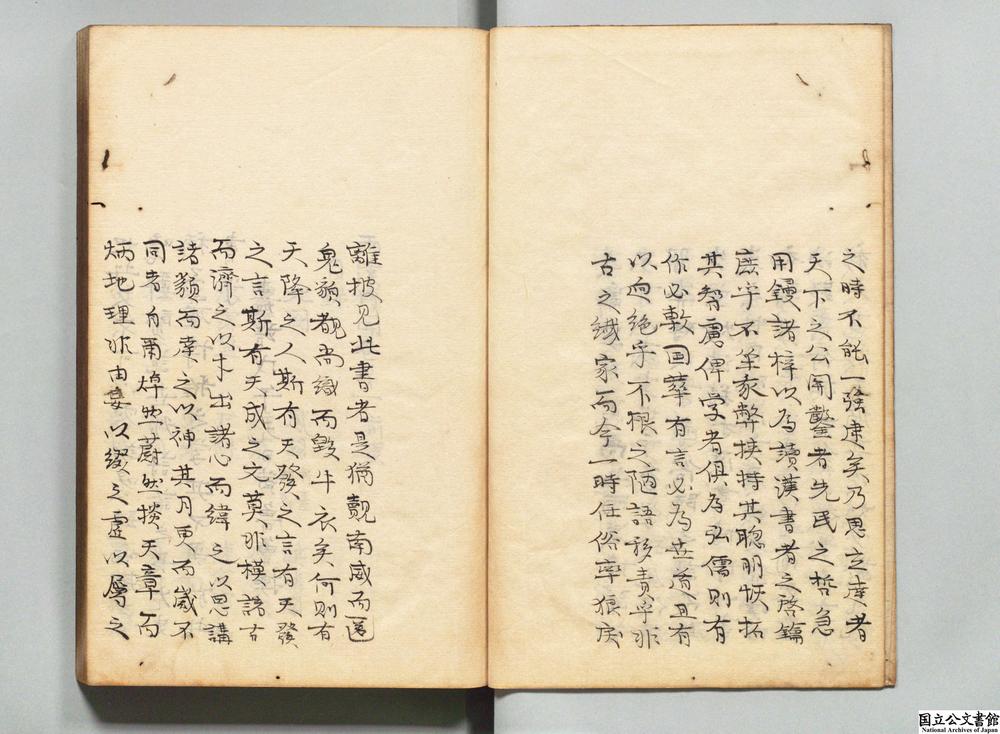 之時不能一強建矣乃思立達者
天下之公開鑿者先民之哲急
用鏝諸梓以為讀漢書者之啓鑰
庶乎不笨家弊挟持其聰明恢拓
其智慮俾学者俱為弘儒則有
作必敷国華有言必為世道且有
以迥絶乎不根之陋語移責乎非
古之緘家而今一時任俗率狼戻
離披見此書者是猶覿南威而
鬼貌都尚織而毀牛衣矣何則有
天降之人斯有天發之言有天發
之言斯有天成之文莫非模諸古
而濟之以才出諸心而緯之以思講
諸類而達之以神其月更而歳不
同者自爾焯然蔚然掞天章而
炳地理非由妄以綴之虚以屬之
国立公文書館
National Archives of Japan